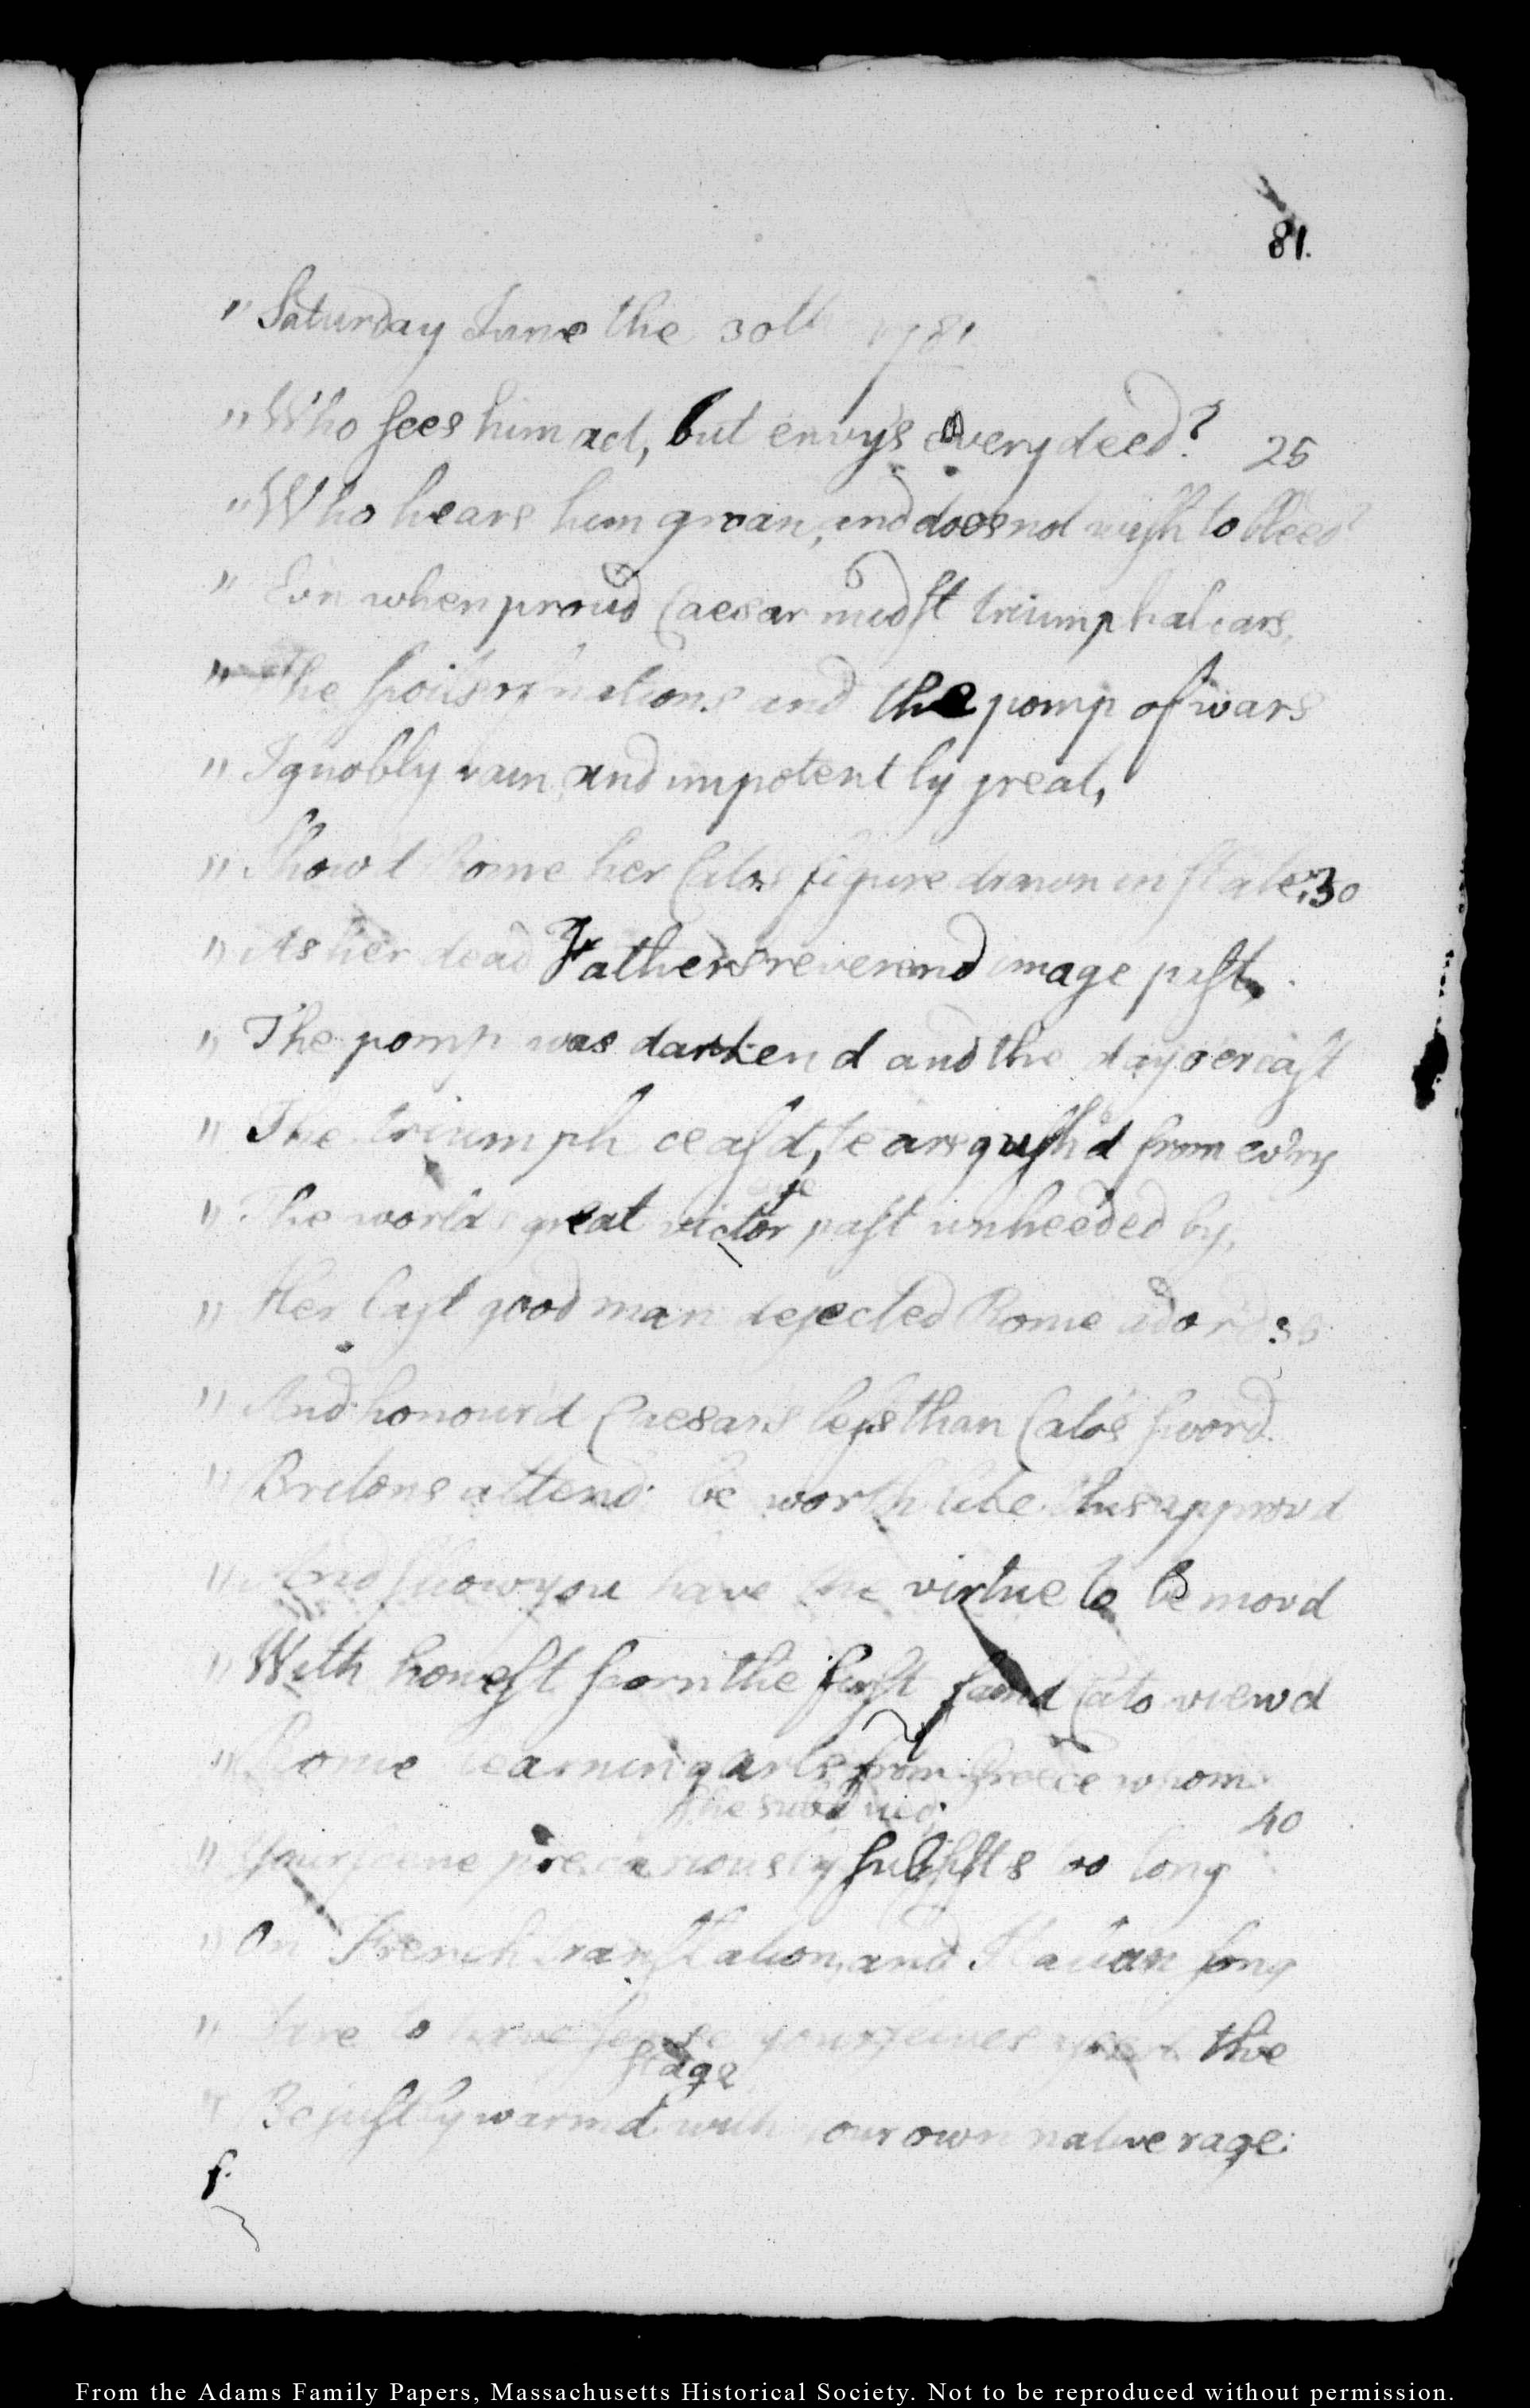 81.
" Saturday June the 30th 1781
" Who sees him act, but envy's every deed? 25
" Who hears him groan, and does not wish to bleed?
" Ev'n when proud Caesar midst triumphal cars,
" The spoils of nations and the pomp of wars
" Ignobly vain, and impotently great,
" Show'd Rome her Cato's figure drawn in state; 30
" As her dead Father's reverend image past,
" The pomp was darken'd and the day o'ercast
" The triumph ceas'd, tears gush'd from ev'ry
eye
" The world's great victor past unheeded by,
" Her last good man dejected Rome ador'd 35
" And honour'd Caesar's less than Cato's sword.
" Britons attend: be worth like this approv'd
" And show you have the virtue to be mov'd
" With honest scorn the first fam'd Cato view'd
" Rome learning arts from Greece whom
she subdued; 40
" Your scene precariously subsists too long
" On French translation, and Italian song
" Dare to have sense yourselves the
stage
" Be justly warm'd with your own native rage:
From the Adams Family Papers, Massachusetts Historical Society. Not to be reproduced without permission.